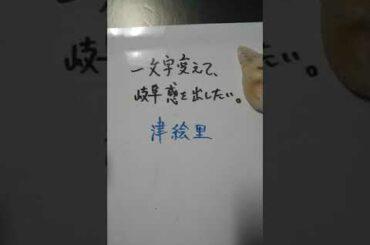 一文字変えて、
岐阜感を出したい。
津絵里